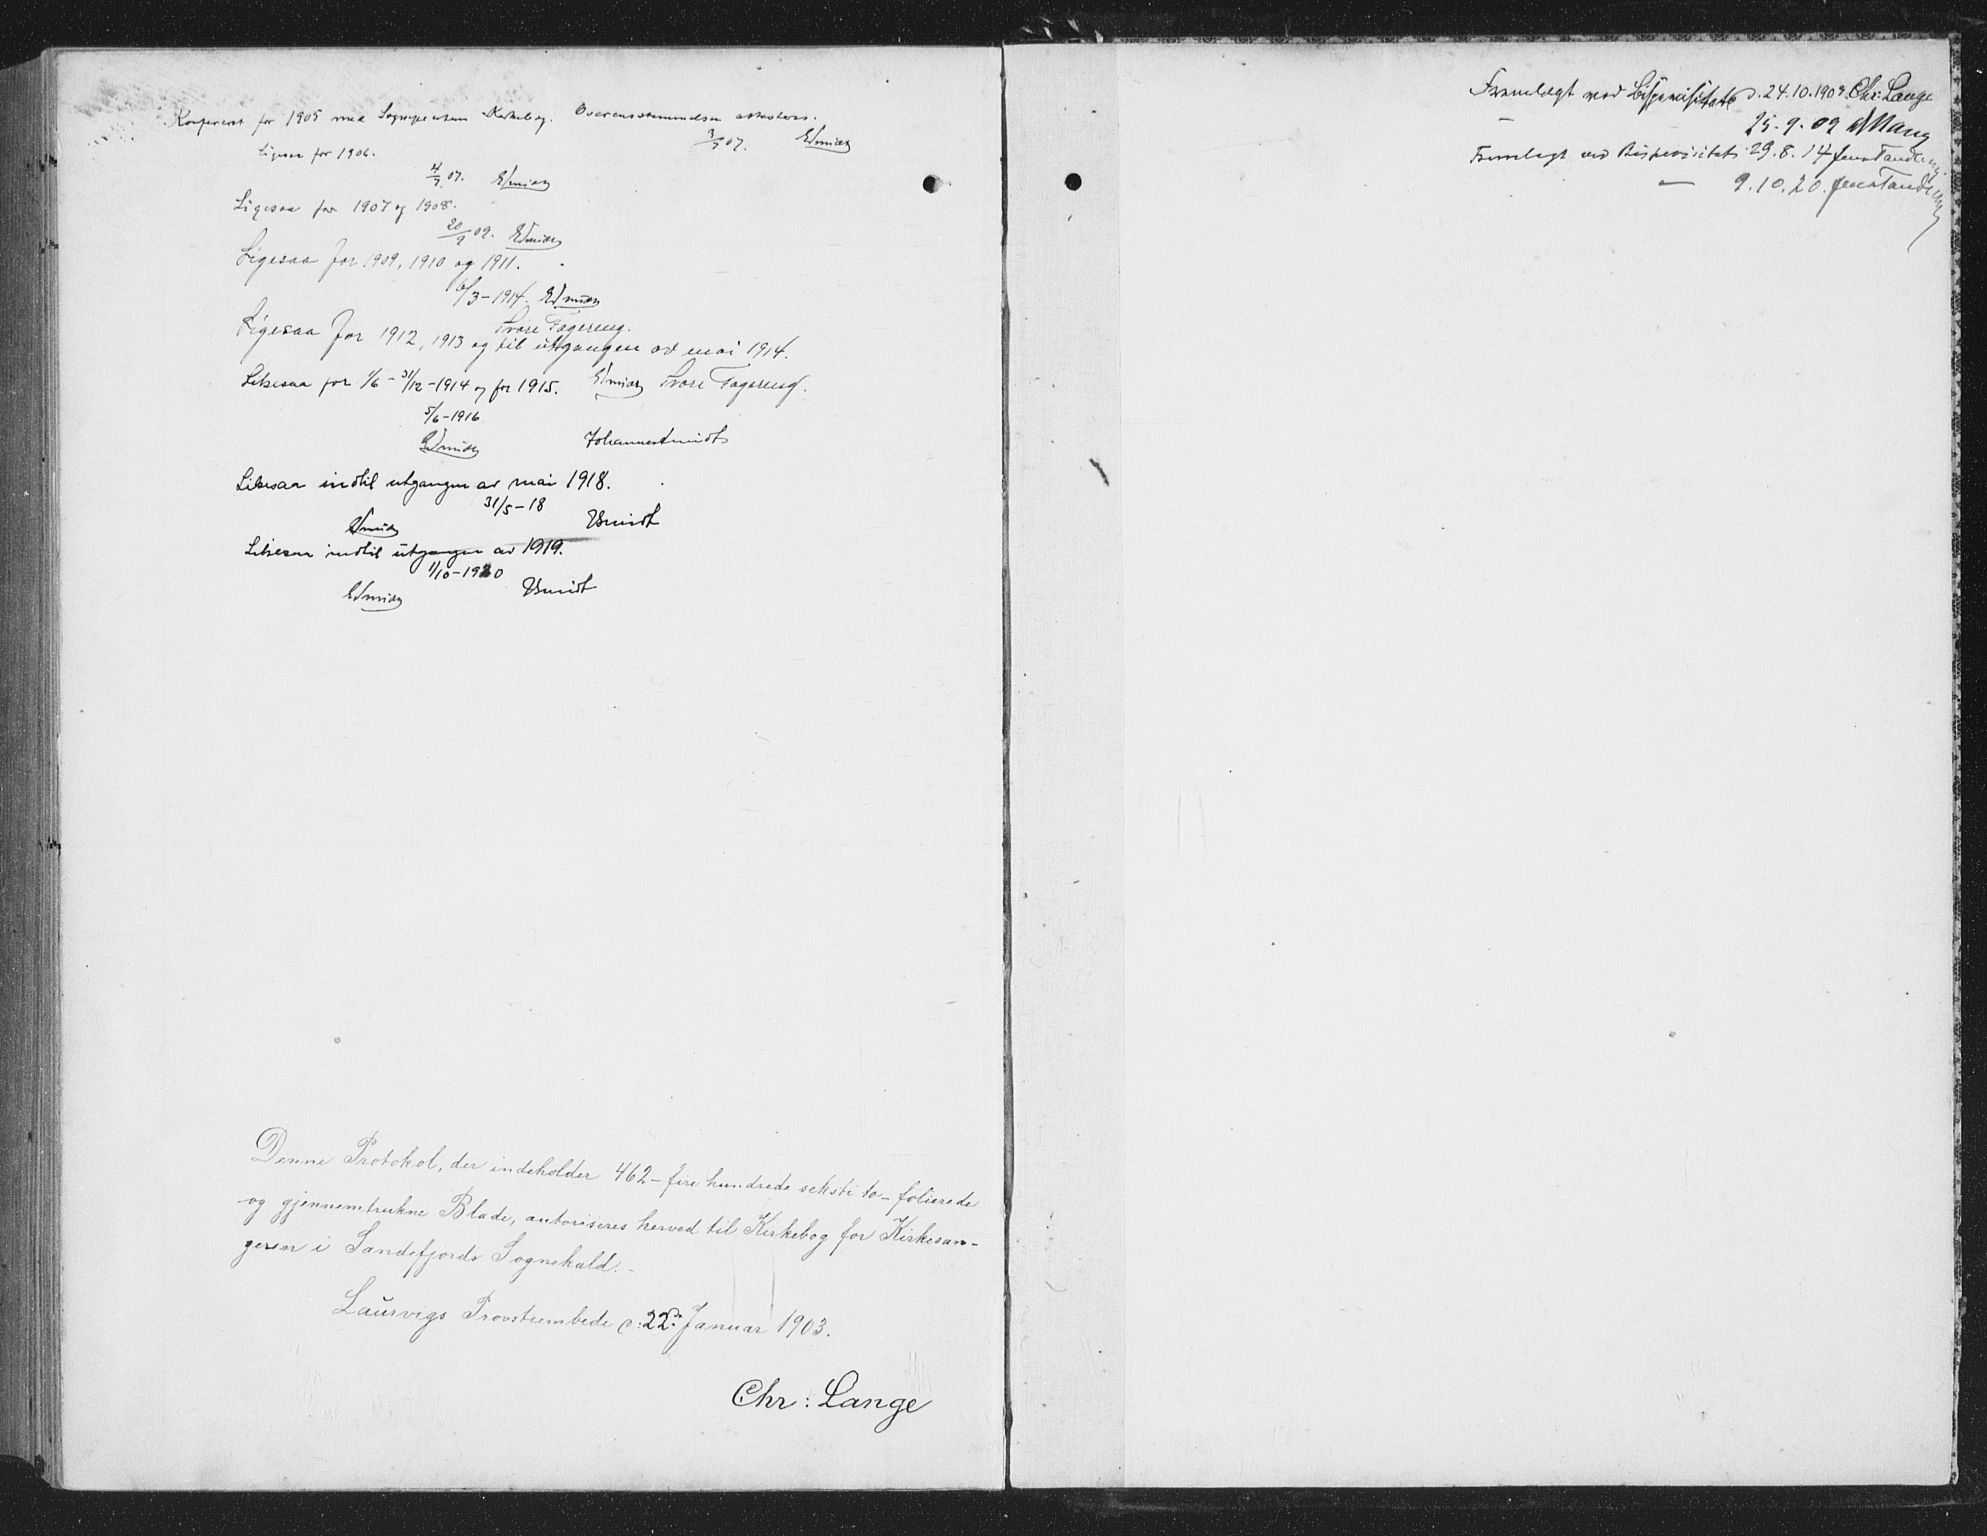 Konfereret for 1905 med Sognepræsten Kirkebog. Overensstemmelsen attesteres.
3/5 07.
Ligesaa for 1906.
4/7 07.
Ligesaa for 1907 og 1908.
20/9 09.
Ligesaa for 1909, 1910 og 1911.
6/3-1914.
Tvore Fagereng.
Ligesaa for 1912, 1913 og til utgangen av mai 1914.
Likesaa for 1/6 - 31/12 - 1914 og for 1915. Tvore Fagereng.
5/6-1916
Johannes Smidt
Likesaa indtil utgangen av mai 1918.
31/5-18
Smidt
Likesaa indtil utgangen av 1919.
1/10-1920
Smidt
Denne Protokol, der indeholder 462 - fire hundrede seksti to - folierede
og gjennemtrukne Blade, autoriseres herved til Kirkebog for Kirkesan-
geren i Sandefjords Sognekald.-
Laurvigs Provsteembede d: 22de Januar 1903.
Chr: Lange
Fremlagt ved Bispevisitats d. 24.10.1904 Chr: Lange
— 25-9-09
Fremlagt ved Bispevisitats 29.8.14 Jens Tandberg
— 9.10.20. Jens Tandberg